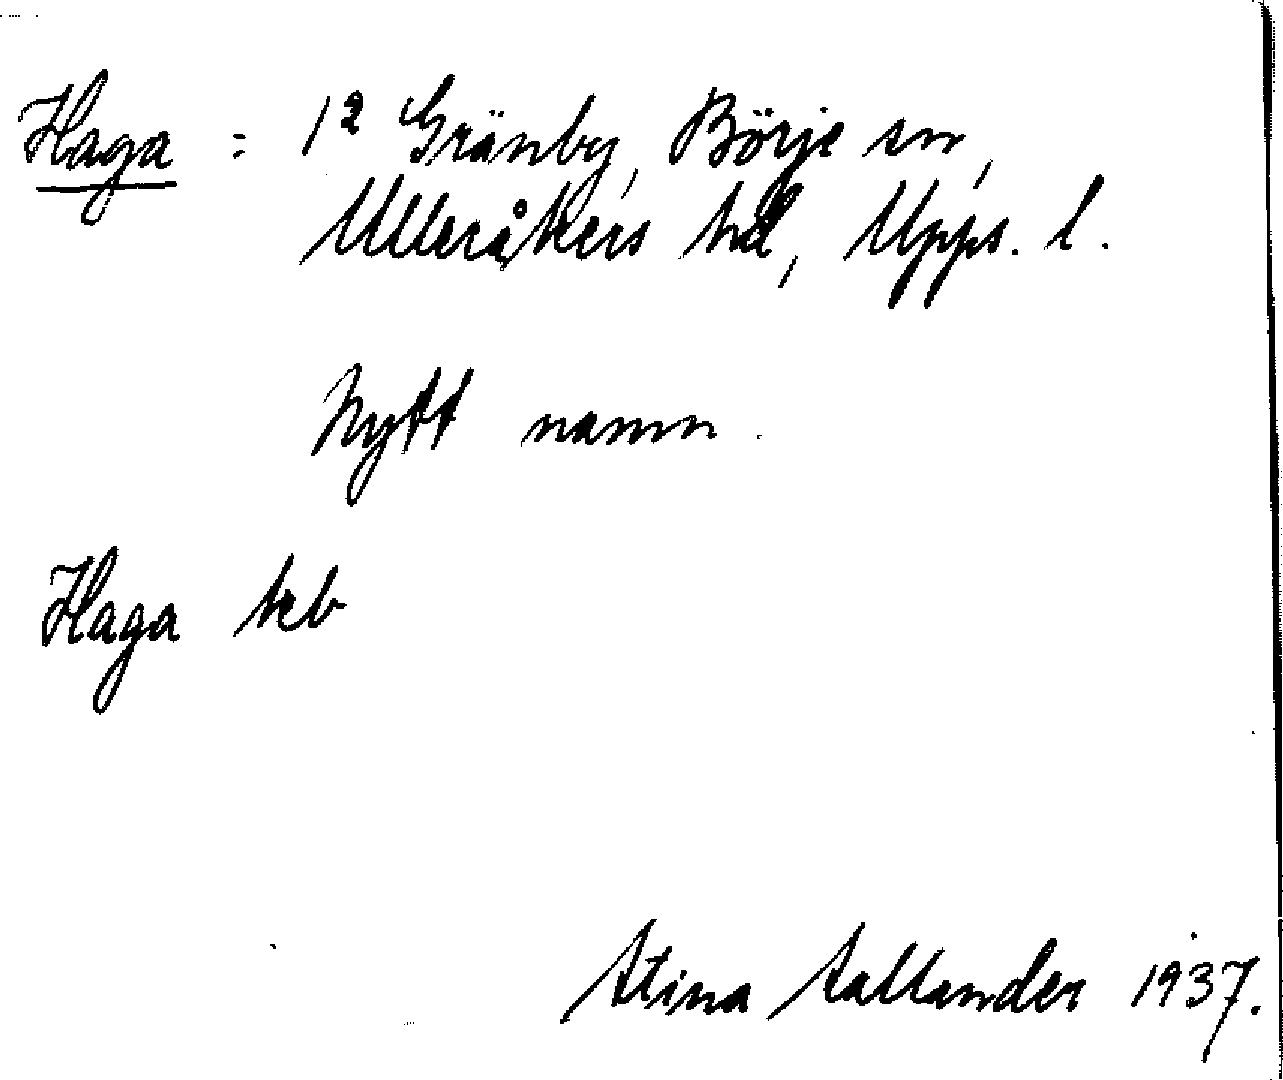 Haga : 1² Gränby, Börje sn,
Ulleråkers hd, Upps. l.
Nytt namn.
Haga kb
Stina Sallander 1937.